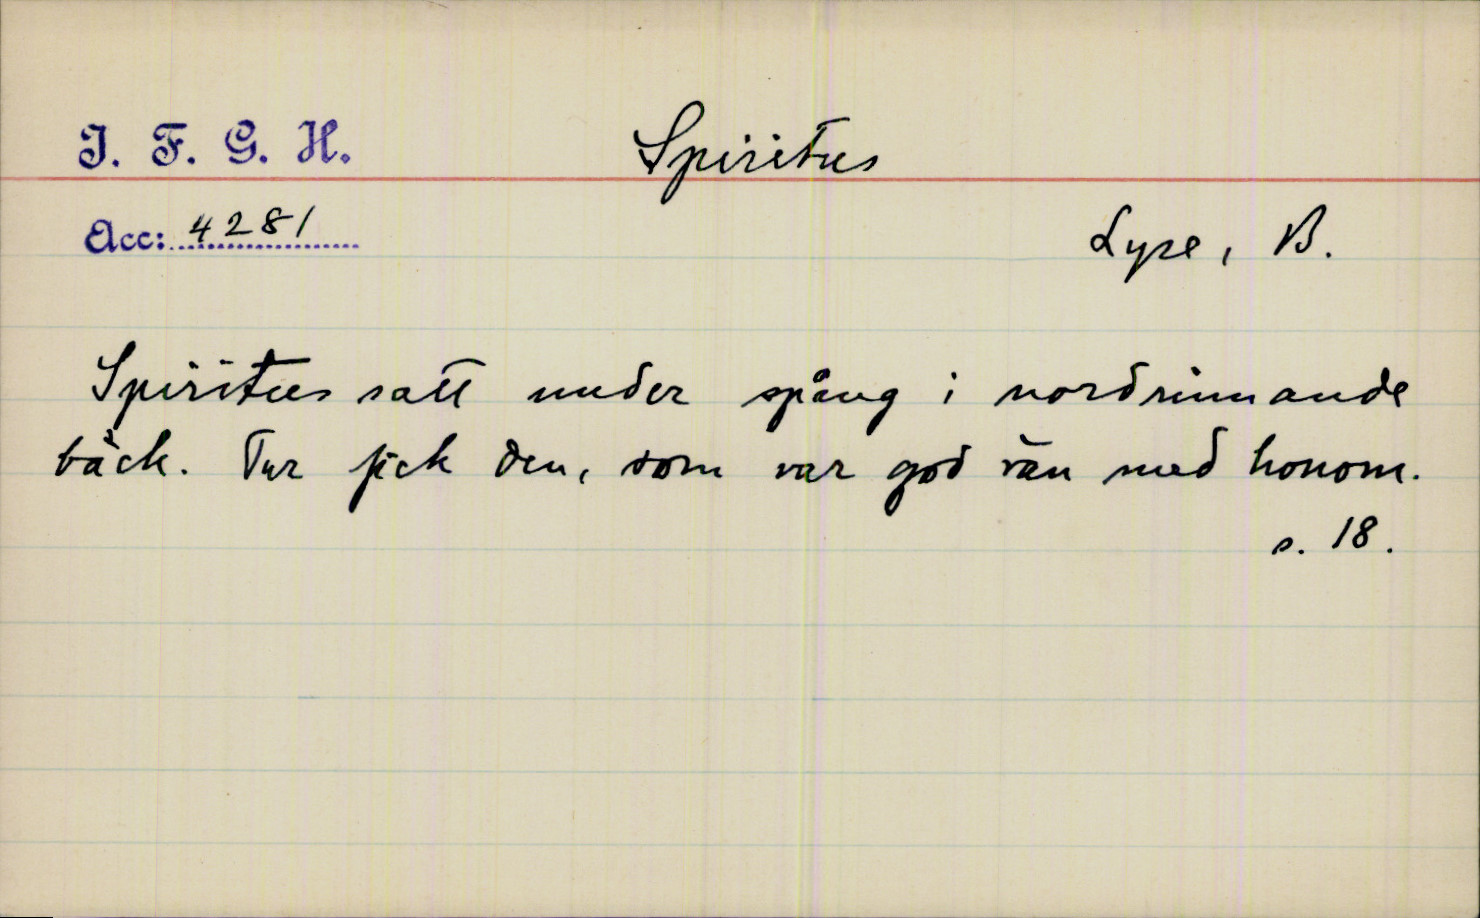 I. F. G. H.
Spiritus
Acc: 4281
Lyse, B.
Spiritus satt under spång i nordrinnande
bäck. Tur fick den, som var god vän med honom.
s. 18.